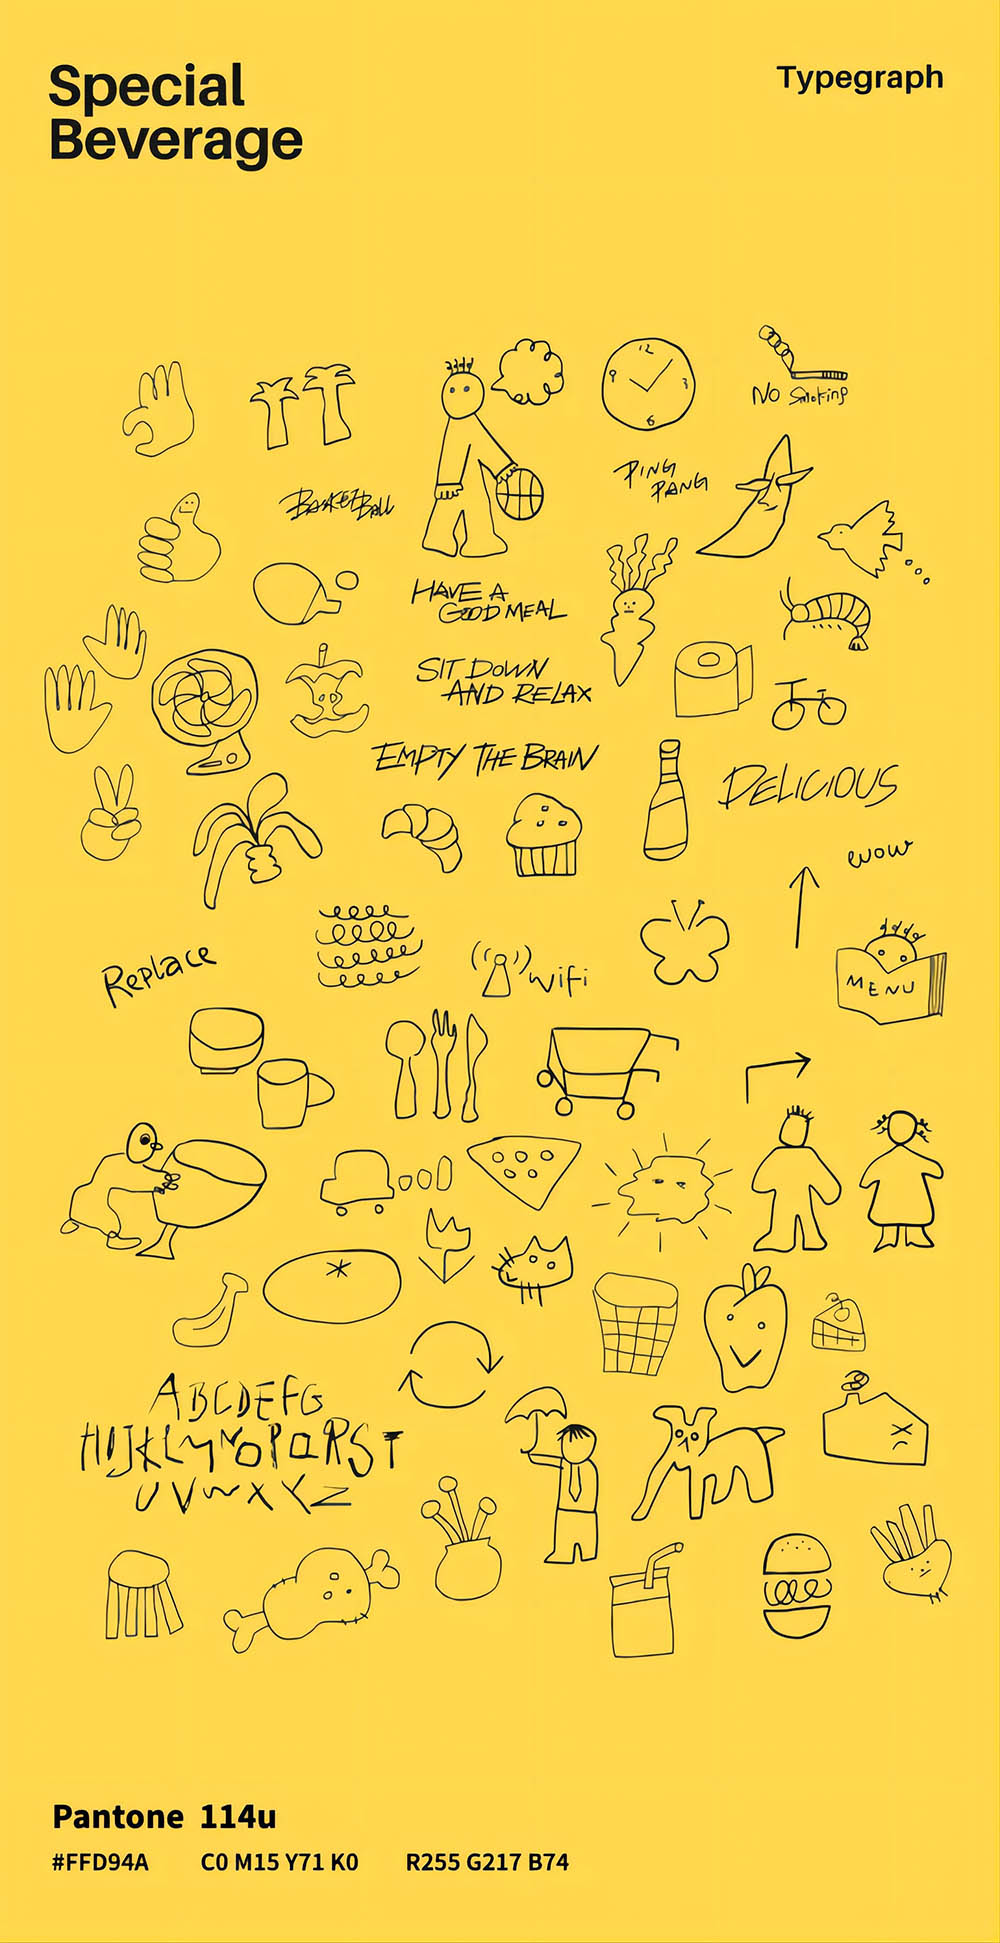 Special
Beverage
Typegraph
12
9 3
6
No Smoking
BASKETBALL
PING
PANG
HAVE A
GOOD MEAL
SIT DOWN
AND RELAX
EMPTY THE BRAIN
DELICIOUS
wow
Replace
wifi
MENU
ABCDEFG
HIJKLMNOPQRST
UVWXYZ
Pantone 114u
#FFD94A C0 M15 Y71 K0 R255 G217 B74